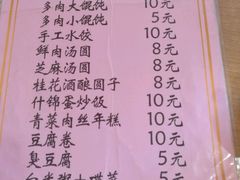 多肉大馄饨 10元
多肉小馄饨 5元
手工水饺 10元
鲜肉汤圆 8元
芝麻汤圆 8元
桂花酒酿圆子 8元
什锦蛋炒饭 10元
青菜肉丝年糕 10元
豆腐卷 10元
臭豆腐 5元
5元